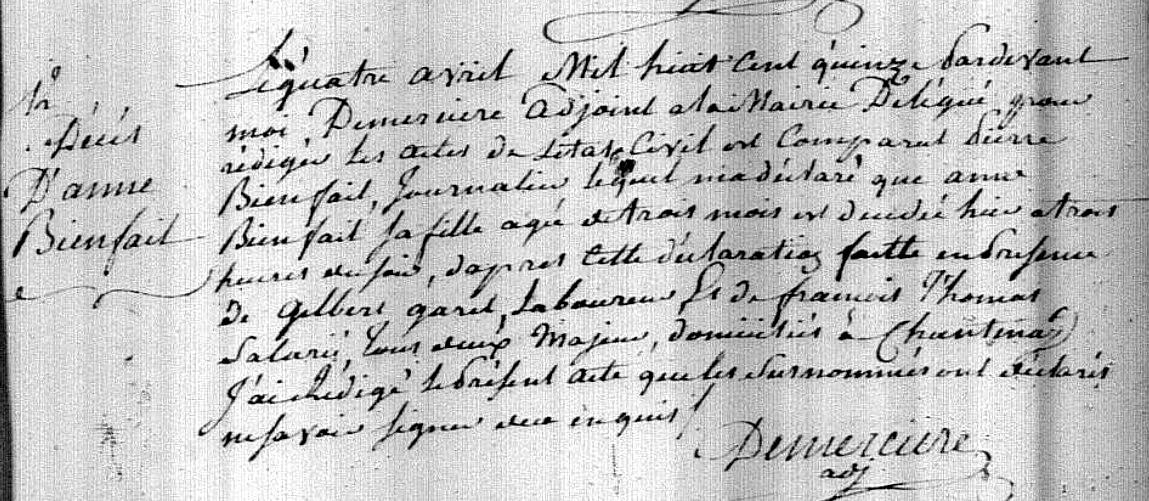 Décès
D'anne
Bienfait
Le quatre avril Mil huit Cent quinze Pardevant
moi, Demerciere adjoint a la Mairie Délégué pour
rédiger les actes de Letat Civil est Comparut Pierre
Bienfait, Journalier lequel m'a déclaré que anne
Bienfait sa fille agé de trois mois est décédé hier a trois
heures du soir, d'apres Cette déclaration faitte en Presence
de gilbert garet, Laboureur Et de françois Thomas
Salarié, tous deux Majeur, domiciliés à Chantenay
J'ai Redigé le Présent acte que les Surnommés ont déclarés
ne savoir signer de ce enquis
Demerciere
adj